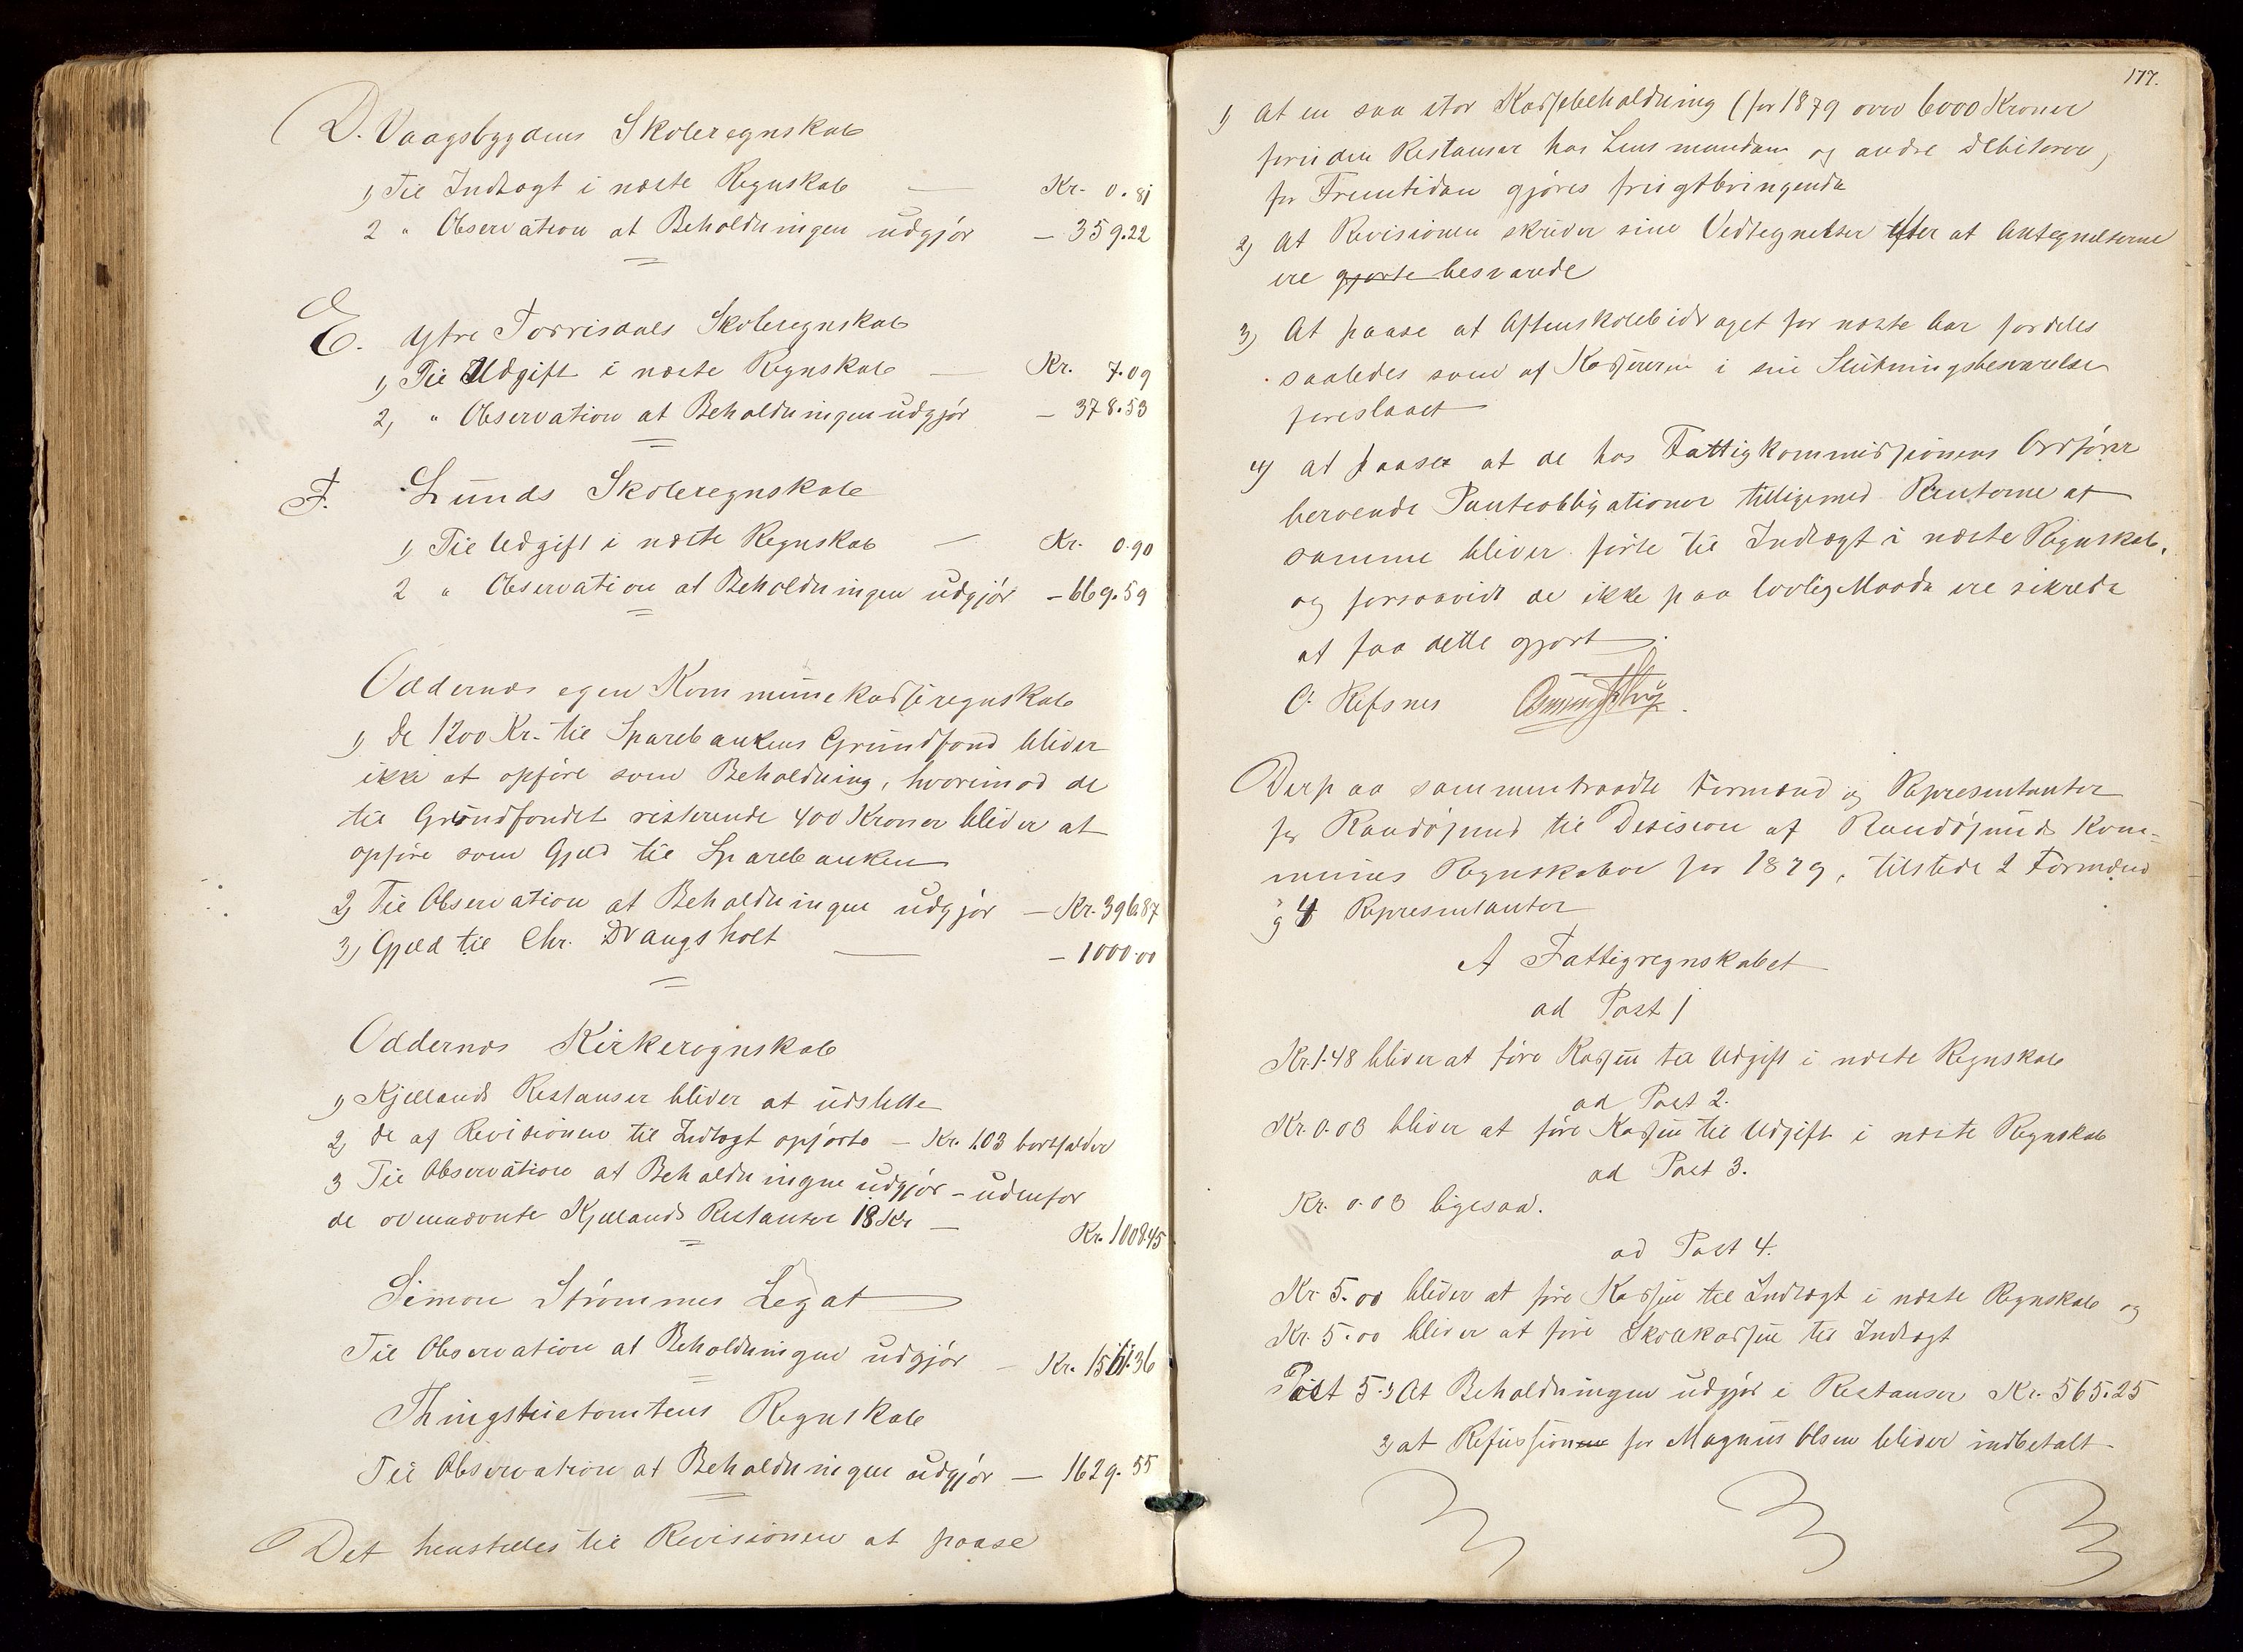 D. Vaagsbygdens Skoleregnskab
1, Til Indtægt i næste Regnskab — Kr. 0.81
2 " Observation at Beholdningen udgjör — 359.22
E. Ytre Torrisdals Skoleregnskab
1, Til Udgift i næste Regnskab — Kr. 7.09
2, " Observation at Beholdningen udgjör — 378.53
F. Lunds Skoleregnskab
1, Til Udgift i næste Regnskab — Kr. 0.90
2 " Observation at Beholdningen udgjör — 669.59
Oddernes egen Kommunekasseregnskab
1, De 1200 Kr. til Sparebankens Grundfond bliver
ikke at opföre som Beholdning, hvorimod de
til Grundfondet resterende 400 Kroner bliver at
opföre som Gjeld til Sparebanken
2, Til Observation at Beholdningen udgjör — Kr.
3, Gjeld til Chr. Drangsholt — 1000.00
Oddernes Kirkeregnskab
1, Kjellands Restanser bliver at udslette
2, De af Revisionen til Indtægt opförte — Kr. 1.03 bortfalder
3 Til Observation at Beholdningen udgjör — udenfor
de ovennævnte Kjellands Restanser 18 Kr — Kr. 1008.45
Simon Strömmes Legat
Til Observation at Beholdningen udgjör — Kr.
Thingstuetomtens Regnskab
Til Observation at Beholdningen udgjör — 1629.55
Det henstilles til Revisionen at paase
177.
1) at en saa stor Kassebeholdning (for 1879 over 6000 Kroner
foruden Restanser hos Lensmanden og andre Debitorer)
for Fremtiden gjöres frugtbringende
2) At Revisionen skriver sine Vedtegnelser efter at Antegnelserne
ere gjorte besvarede
3) At paase at Aftenskolebidraget for næste Aar fordeles
saaledes som af Kassereren i sin Slutningsbesvarelse
foreslaaet
4) at paasee at de hos Fattigkommissionens Ordförer
beroende Panteobligationer tilligemed Renterne af
samme bliver förte til Indtægt i næste Regnskab,
og forsaavidt de ikke paa lovlig Maade ere sikrede
at faa dette gjort.
O. Refsnes
Derpaa sammentraadte Formænd og Representanter
for Randöjund til Desision af Randöjunds Kom-
munes Regnskaber for 1879, tilstede 2 Formænd
og 4 Representanter
A Fattigregnskabet
ad Post 1
Kr. 1.48 bliver at före Kassen til Udgift i næste Regnskab
ad Post 2.
Kr. 0.03 bliver at före Kassen til Udgift i næste Regnskab
ad Post 3.
Kr. 0.03 ligesaa.
ad Post 4.
Kr. 5.00 bliver at före Kassen til Indtægt i næste Regnskab og
Kr. 5.00 bliver at före Skolekassen til Indtægt
Post 5. 1) At Beholdningen udgjör i Restanser Kr. 565.25
2) at Refussionen for Magnus Olsen bliver indbetalt.